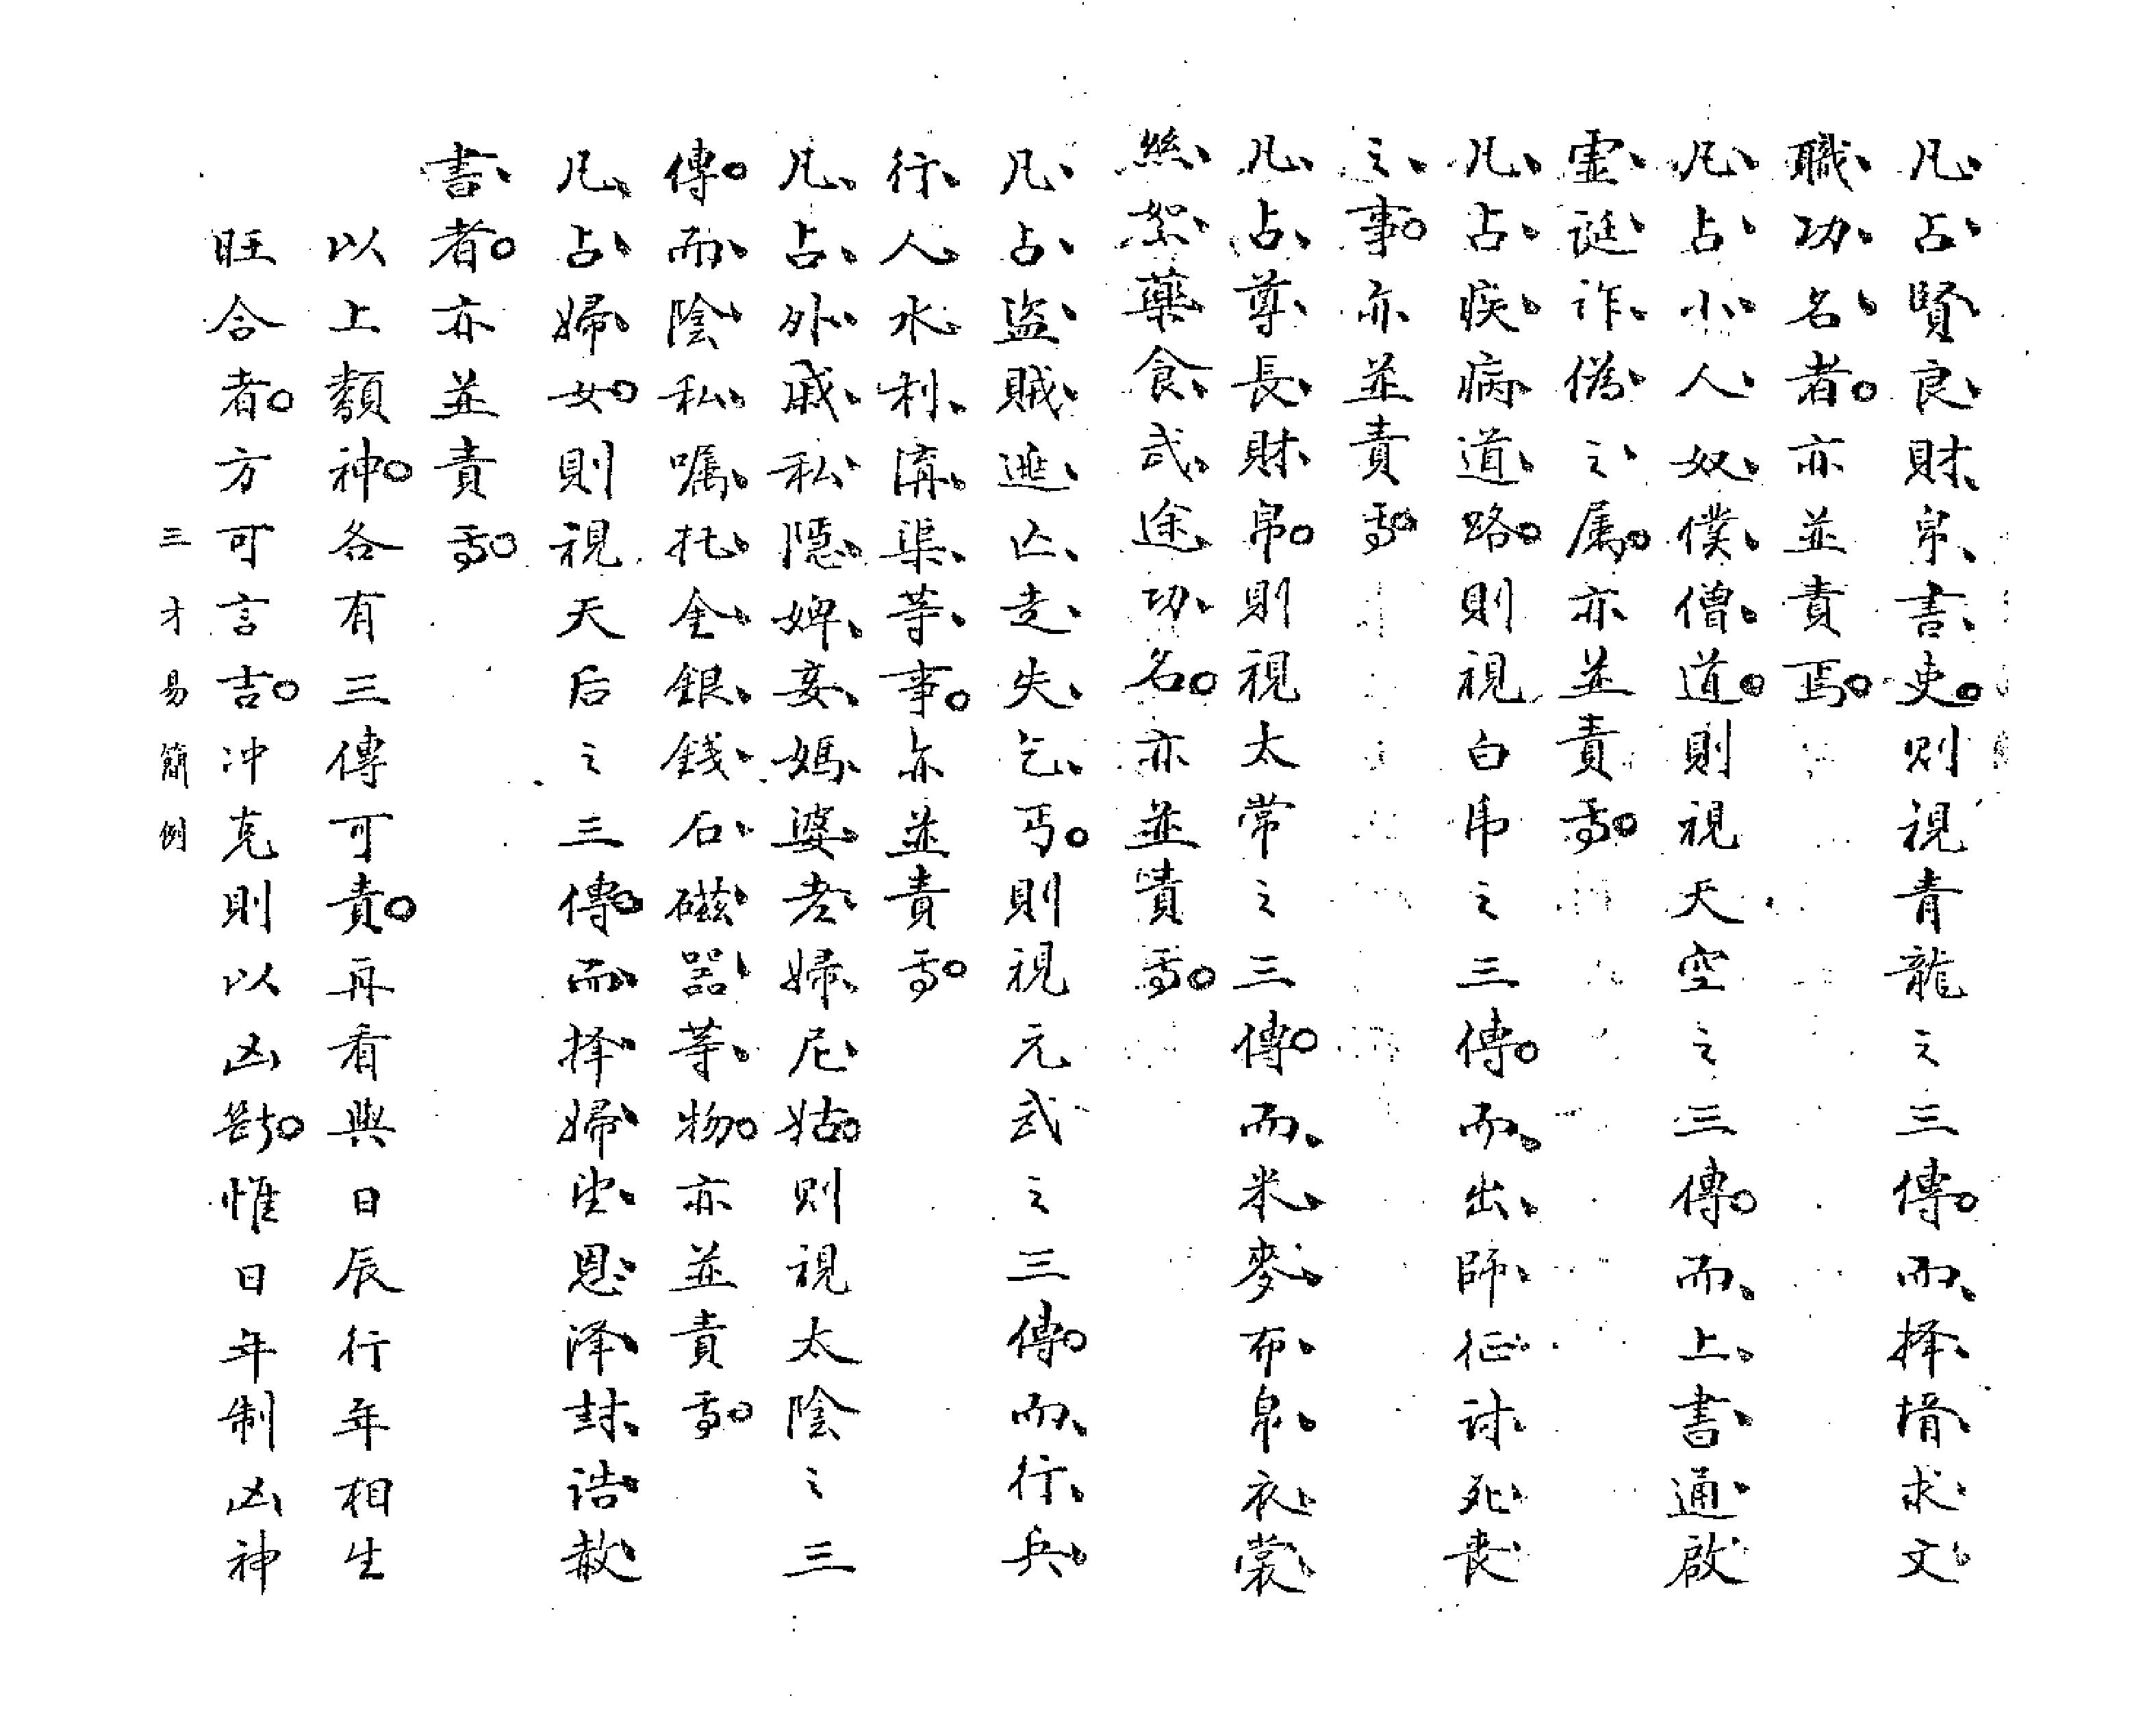 凡占賢良財帛書吏。則視青龍之三傳。而择壻求文
職功名者。亦並責焉。
凡占小人奴僕僧道。則視天空之三傳。而上書通啟
虛誕詐偽之属。亦並責焉。
凡占疾病道路。則視白虎之三傳。而出師征討死喪
之事。亦並責焉。
凡占尊長財帛。則視太常之三傳。而米麥布帛衣裳
絲絮藥食武途功名。亦並責焉。
凡占盜賊逃亡走失乞丐。則視元武之三傳。而行兵
行人水利溝渠等事。亦並責焉。
凡占外戚私隱婢妾媽婆老婦尼姑。則視太陰之三
傳。而陰私嘱托金銀錢石磁器等物。亦並責焉。
凡占婦女。則視天后之三傳。而择婦望恩泽封誥赦
書者。亦並責焉。
以上類神。各有三傳可責。再看與日辰行年相生
旺合者。方可言吉。冲克則以凶斷。惟日年制凶神
三才易簡例